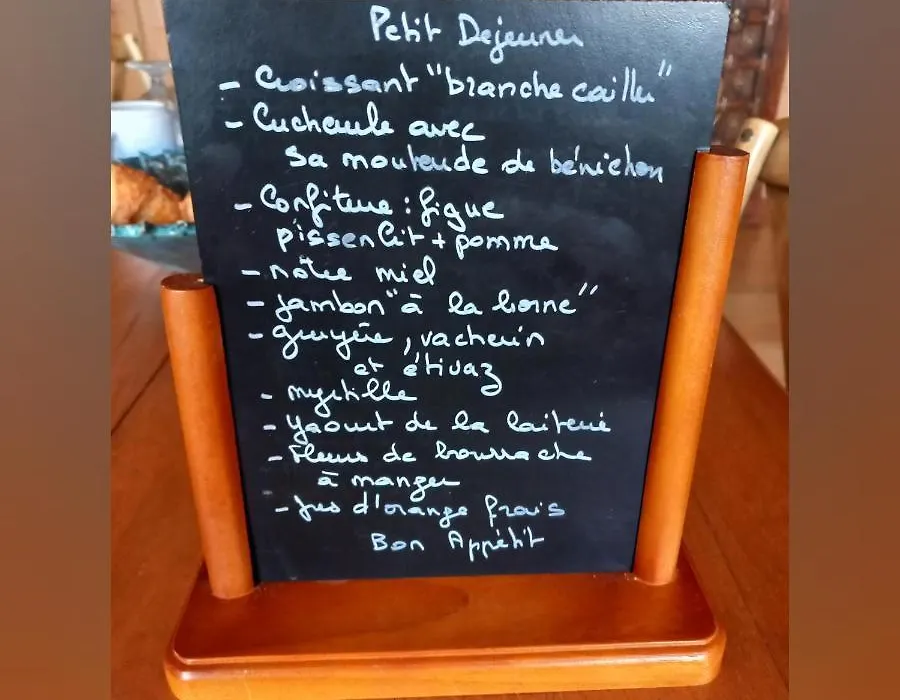 Petit Dejeuner
- Croissant "branche caillu"
- Cuchaule avec
sa moutarde de bénichon
- Confiture : figue
pissenlit + pomme
- nôtre miel
- jambon "à la borne"
- gruyère, vacherin
et étivaz
- myrtille
- yaourt de la laiterie
- Fleurs de bourrache
à manger
- jus d'orange frais
Bon Appétit